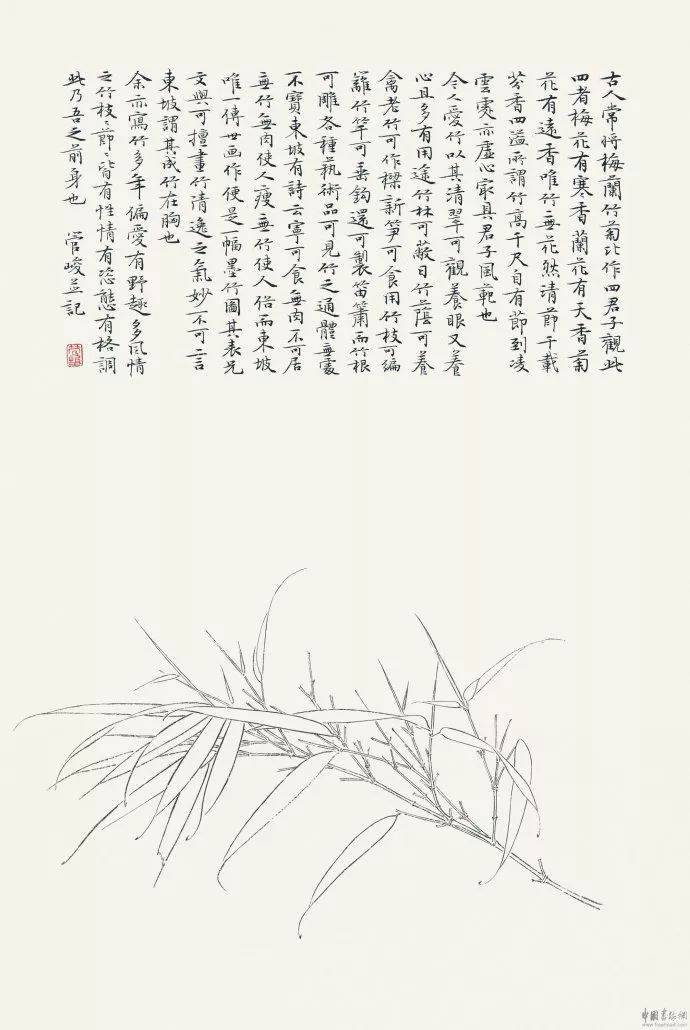 古人常將梅蘭竹菊比作四君子觀此
四者梅花有寒香蘭花有天香菊
花有遠香唯竹無花然清節千載
芬香四溢所謂竹高千尺自有節到凌
雲處亦虛心寂具君子風範也
今人愛竹以其清翠可觀養眼又養
心且多有用途竹林可蔽日竹蔭可養
禽老竹可作樑新笋可食用竹枝可編
籬竹竿可垂鈎還可製笛簫而竹根
可雕各種藝術品可見竹之通體無處
不寶東坡有詩云寧可食無肉不可居
無竹無肉使人瘦無竹使人俗而東坡
唯一傳世画作便是一幅墨竹圖其表兄
文與可擅畫竹清逸之氣妙不可言
東坡謂其成竹在胸也
余亦寫竹多年偏愛有野趣多風情
之竹枝〻節〻皆有性情有恣態有格調
此乃吾之前身也 管峻并記
中國書法網